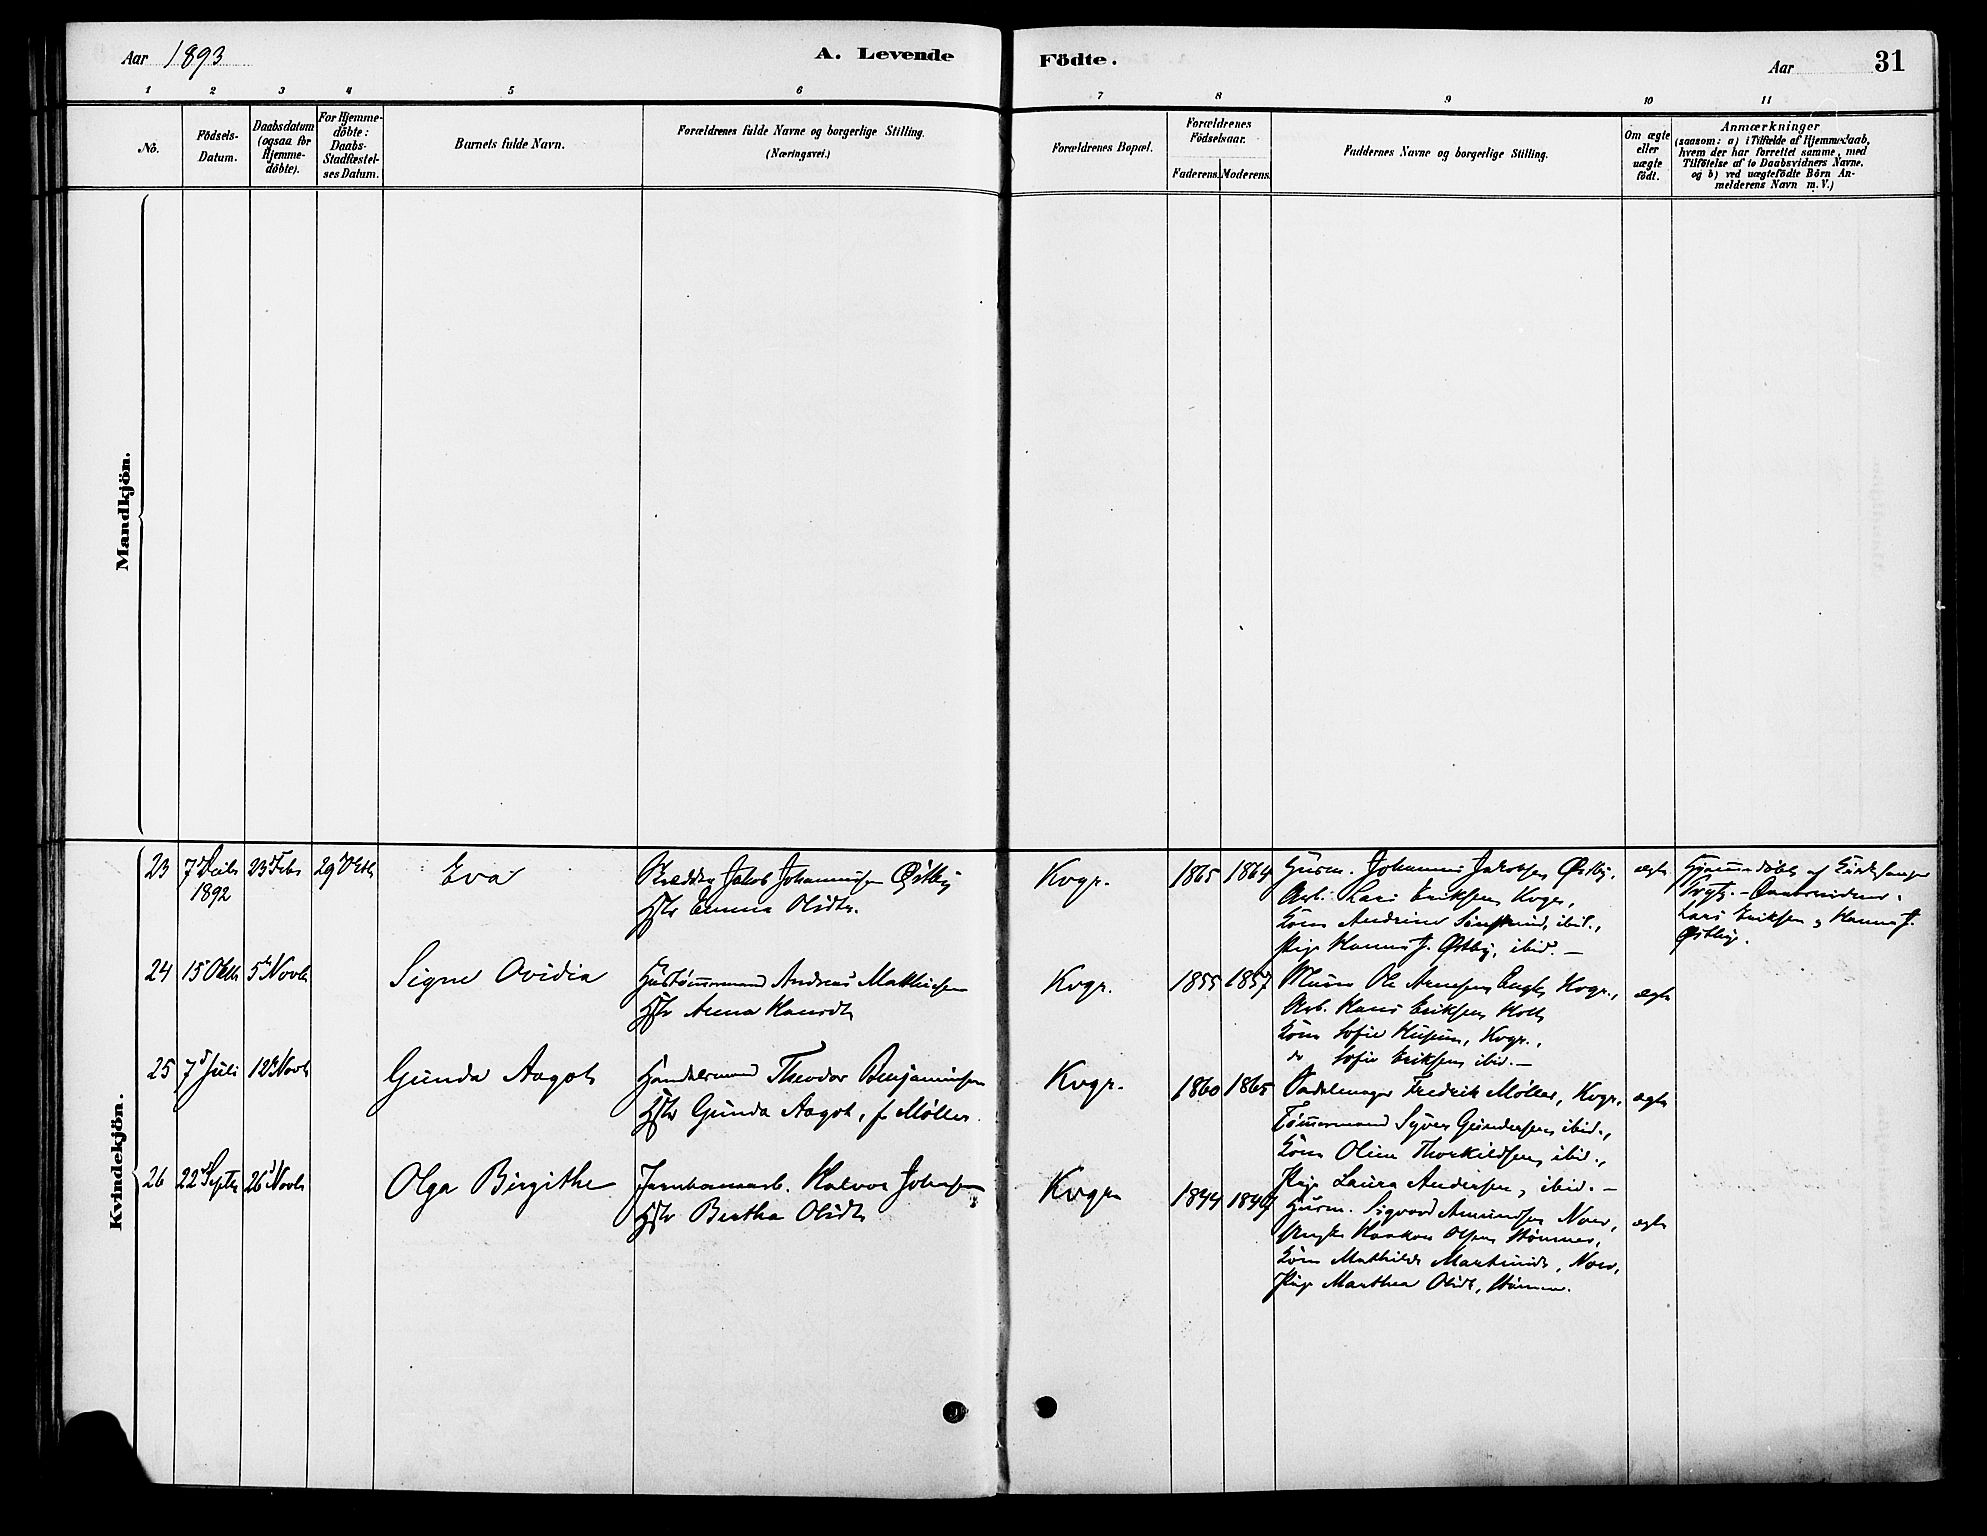 Aar 1893
A. Levende Födte.
Aar 31
1 2 3 4 5 6 7 8 9 10 11
No.
Födsels-
Datum.
Daabsdatum
(ogsaa for
Hjemme-
döbte).
For Hjemme-
döbte:
Daabs-
Stadfæstel-
ses Datum.
Barnets fulde Navn.
Forældrenes fulde Navne og borgerlige Stilling.
(Næringsvei.)
Forældrenes Bopæl.
Forældrenes
Födselsaar.
Faderens. Moderens.
Faddernes Navne og borgerlige Stilling.
Om ægte
eller
uægte
födt.
Anmærkninger
(saasom: a) i Tilfælde af Hjemmedaab,
hvem der har forrettet samme, med
Tilföielse af to Daabsvidners Navne,
og b) ved uægtefödte Börn An-
melderens Navn m. V.)
Mandkjön.
Kvindekjön.
23 7 1892 23 Febr 29
Eva
Jakob Johannesen Østby
Hstr Emma Olsdtr.
Kvgr.
1865 1864
Husm. Johannes Jakobsen Østby,
Arb. Lars Eriksen Kvgr,
Kone Andrine ibid.,
Pige Hanna J. Østby, ibid. —
ægte
Hjemmedöbt af Kirkesanger
Lars Eriksen, Hanna J.
Østby.
24 15 Oktb 5 Novb
Signe Ovidia
Hustømmermand Andreas Mathisen
Hstr Anna Hansdtr
Kvgr.
1855 1857
Murer Ole Arnesen Kvgr.,
Arb. Hans Eriksen Holt
Kone Sofie Kvgr.,
do Sofie Eriksen ibid. —
ægte
25 7 Juli 12 Novb
Gunda Aagot
Handelsmand Theodor Benjaminsen
Hstr Gunda Aagot, f. Møller.
Kvgr.
1860 1865
Sadelmager Fredrik Møller, Kvgr,
Tømmermand Syver Gundersen ibid.,
Kone Oline Thorkildsen ibid.,
Pige Laura Andersen, ibid. —
ægte
26 22 Septb 26 Novb
Olga Birgithe
Jernbanearb. Halvor Johnsen
Hstr Bertha Olsdtr
Kvgr
1844 1849
Husm. Sigvard Amundsen Noer,
Haakon Olsen
Kone Mathilde Martinsd., Noer,
Pige Marthea Olsdt,
ægte